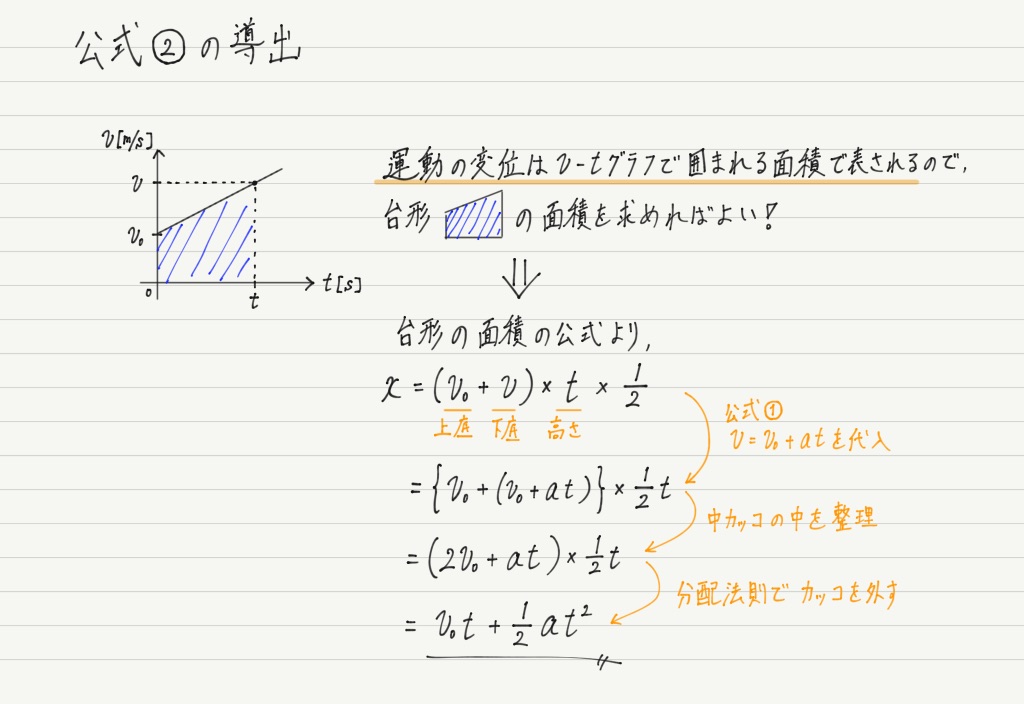 公式②の導出
v[m/s]
v
v₀
0
t
t[s]
運動の変位はv-tグラフで囲まれる面積で表されるので,
台形 の面積を求めればよい!
⇓
台形の面積の公式より,
x = (v₀ + v) × t × 1/2
上底 下底 高さ
公式①
v = v₀ + at を代入
= {v₀ + (v₀ + at)} × 1/2 t
中カッコの中を整理
= (2v₀ + at) × 1/2 t
分配法則でカッコを外す
= v₀t + 1/2 at²